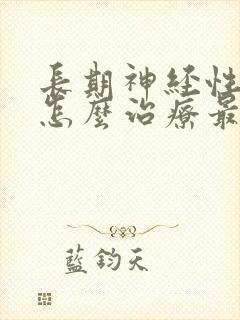 長期神經性
怎麼治療最
藍鈞天